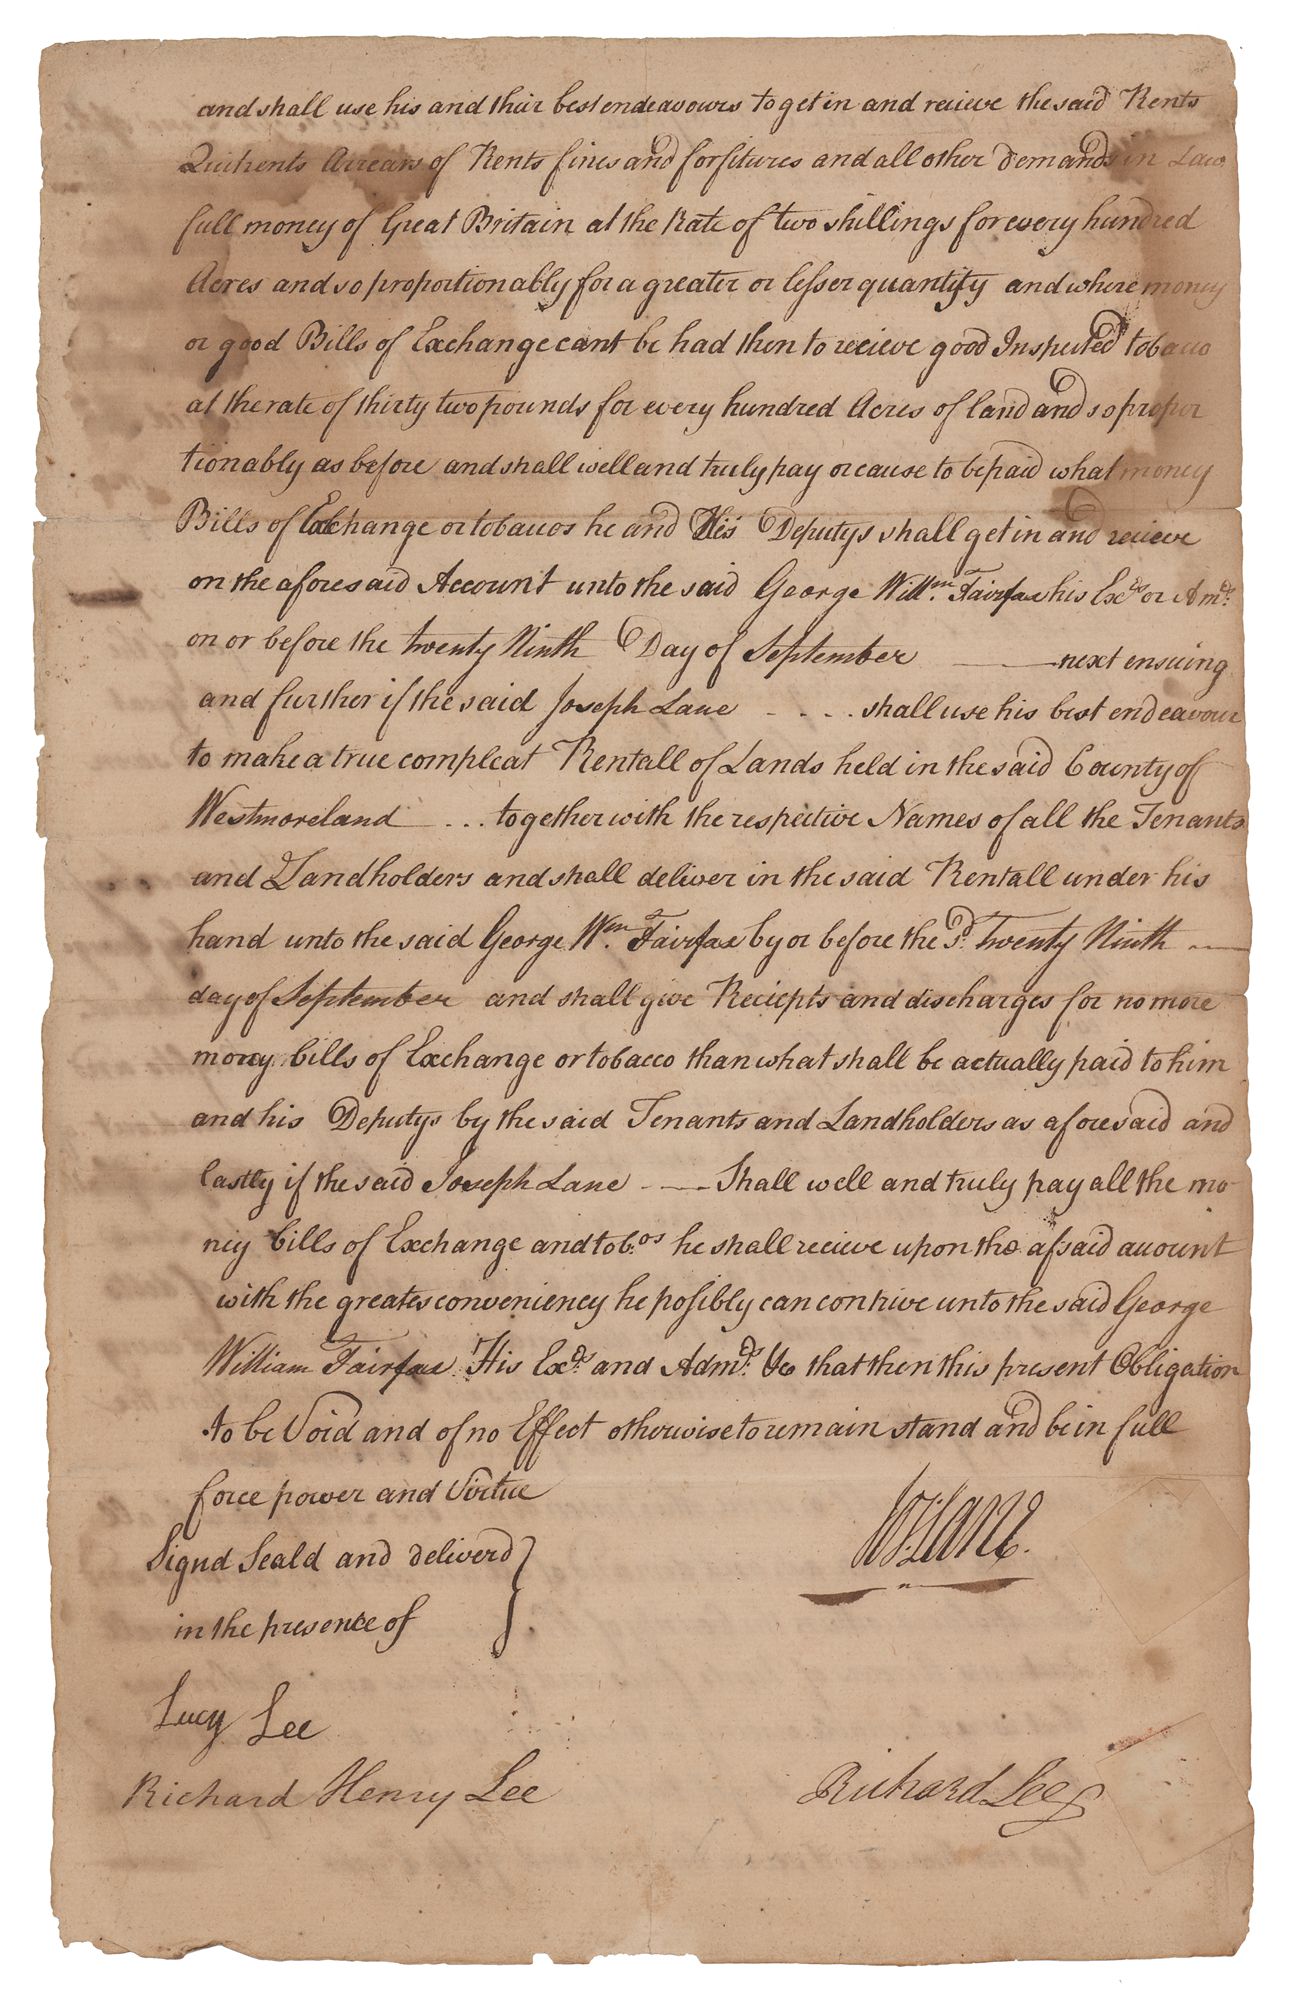 and shall use his and their best endeavours to get in and recieve the said Rents
Quitrents Arrears of Rents fines and forfitures and all other demands in Law
full money of Great Britain at the Rate of two shillings for every hundred
Acres and so proportionably for a greater or lesser quantify and where money
or good Bills of Exchange cant be had then to recieve good Inspected tobacco
at the rate of thirty two pounds for every hundred Acres of land and so propor
tionably as before and shall well and truly pay or cause to be paid what money
Bills of Exchange or tobaccos he and His Deputys shall get in and recieve
on the aforesaid Account unto the said George Willm. Fairfax his Exrs or Amds.
on or before the twenty Ninth Day of September ——— next ensuing
and further if the said Joseph Lane - . . . shall use his best endeavour
to make a true compleat Rentall of Lands held in the said County of
Westmoreland - ... together with the respective Names of all the Tenants
and Landholders and shall deliver in the said Rentall under his
hand unto the said George Wm. Fairfax by or before the Sd. Twenty Ninth —
day of September and shall give Reciepts and discharges for no more
money bills of Exchange or tobacco than what shall be actually paid to him
and his Deputys by the said Tenants and Landholders as aforesaid and
lastly if the said Joseph Lane - — Shall well and truly pay all the mo-
ney bills of Exchange and tob.os he shall recieve upon the afsaid account
with the greates conveniency he possibly can contrive unto the said George
William Fairfax His Exds. and Admds. &c that then this present Obligation
to be Void and of no Effect otherwise to remain stand and be in full
force power and Virtue
Signd Seald and deliverd }
in the presence of
Jos: Lane.
Lucy Lee
Richard Henry Lee
Richard Lee